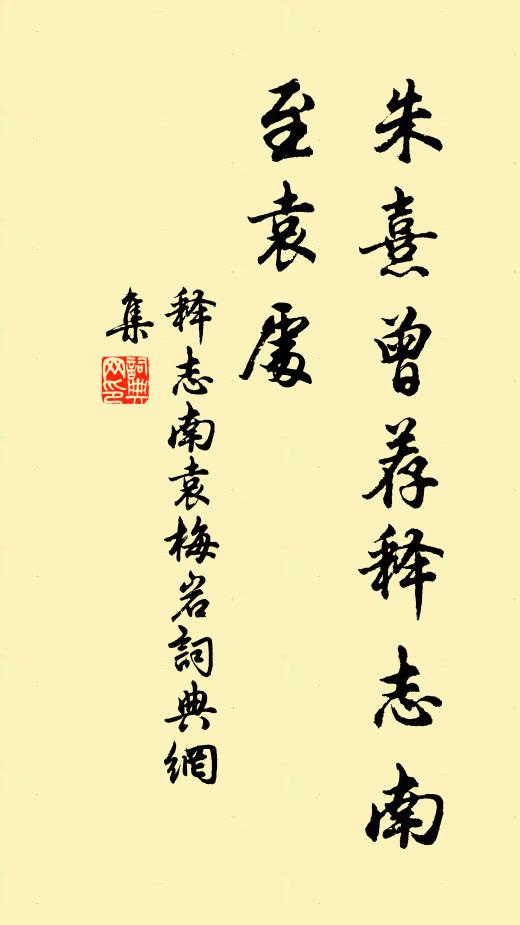 朱熹曾荐释志南
至袁处
释志南袁梅岩詞典網
集
詞典
网印